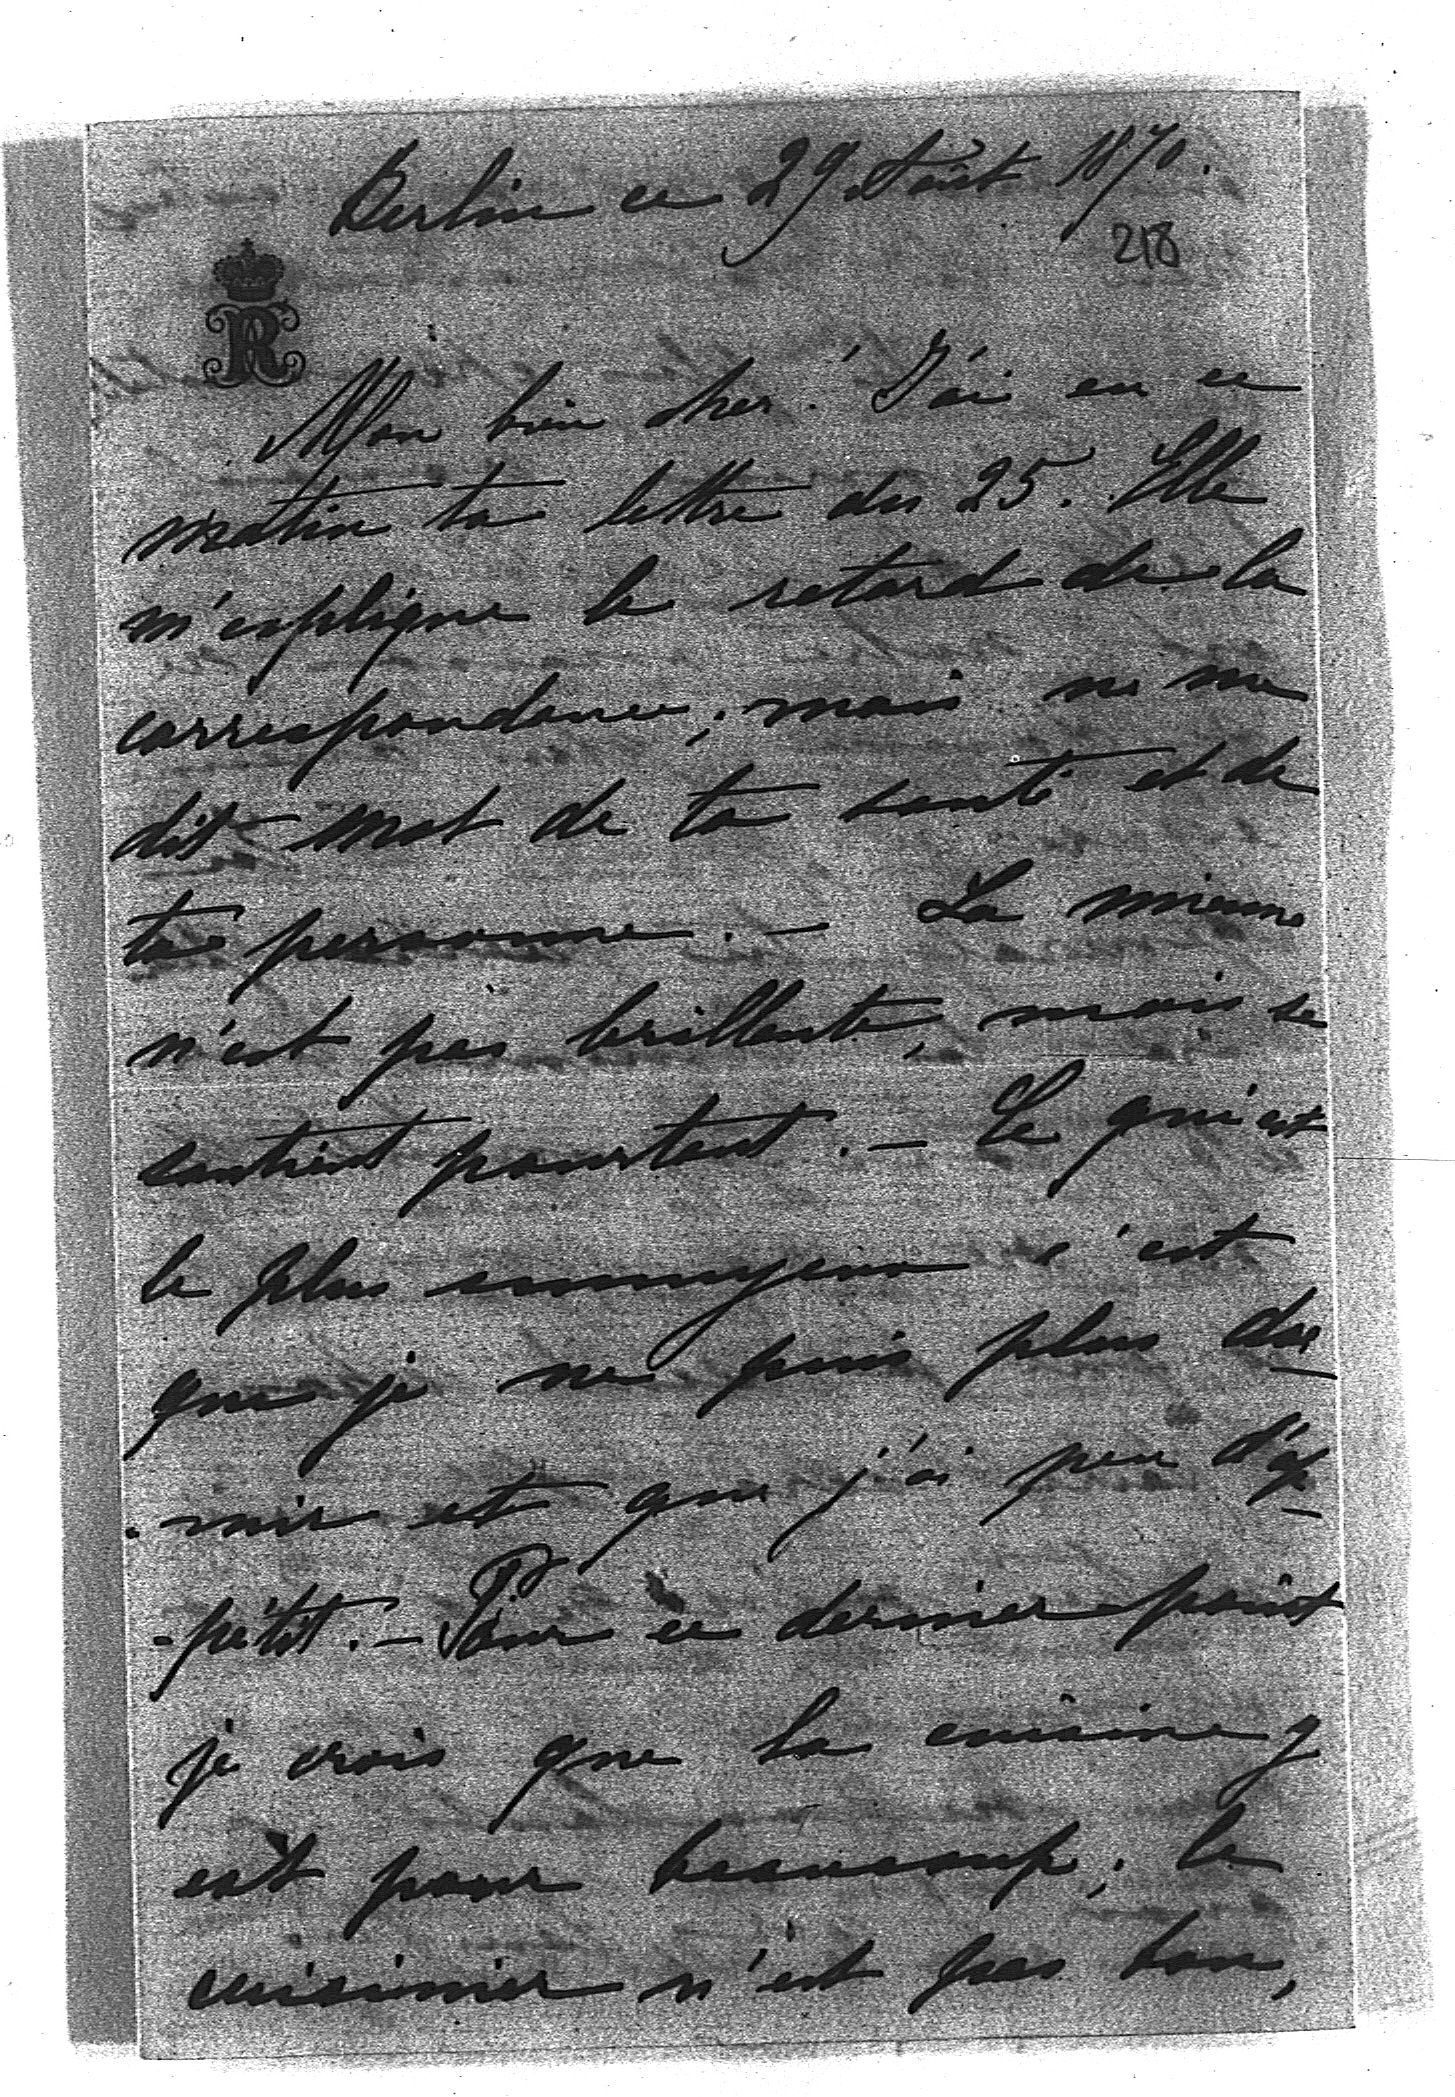 Berlin ce 29 Août 1870.
218
R
Mon bien cher! J'ai eu ce
matin ta lettre du 25. Elle
m'explique le retard de la
correspondance, mais ne me
dit mot de ta santé et de
ta personne. - La mienne
n'est pas brillante, mais se
soutient pourtant. - Ce qui est
le plus ennuyeux c'est
que je ne puis plus dor-
-mir et que j'ai peu d'ap-
-pétit. - Pour ce dernier point
je crois que la cuisine y
est pour beaucoup; le
cuisinier n'est pas bon,